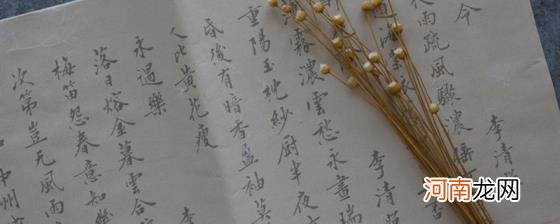 令 李清
雨疏風驟濃睡
海棠依
李清
霧濃雲愁永晝瑞
重陽玉枕紗厨半夜
昏後有暗香盈袖莫
人比黃花瘦
永遇樂 李
落日熔金暮雲合
梅笛怨春意知幾
次第豈无風雨
中州
河南龙网